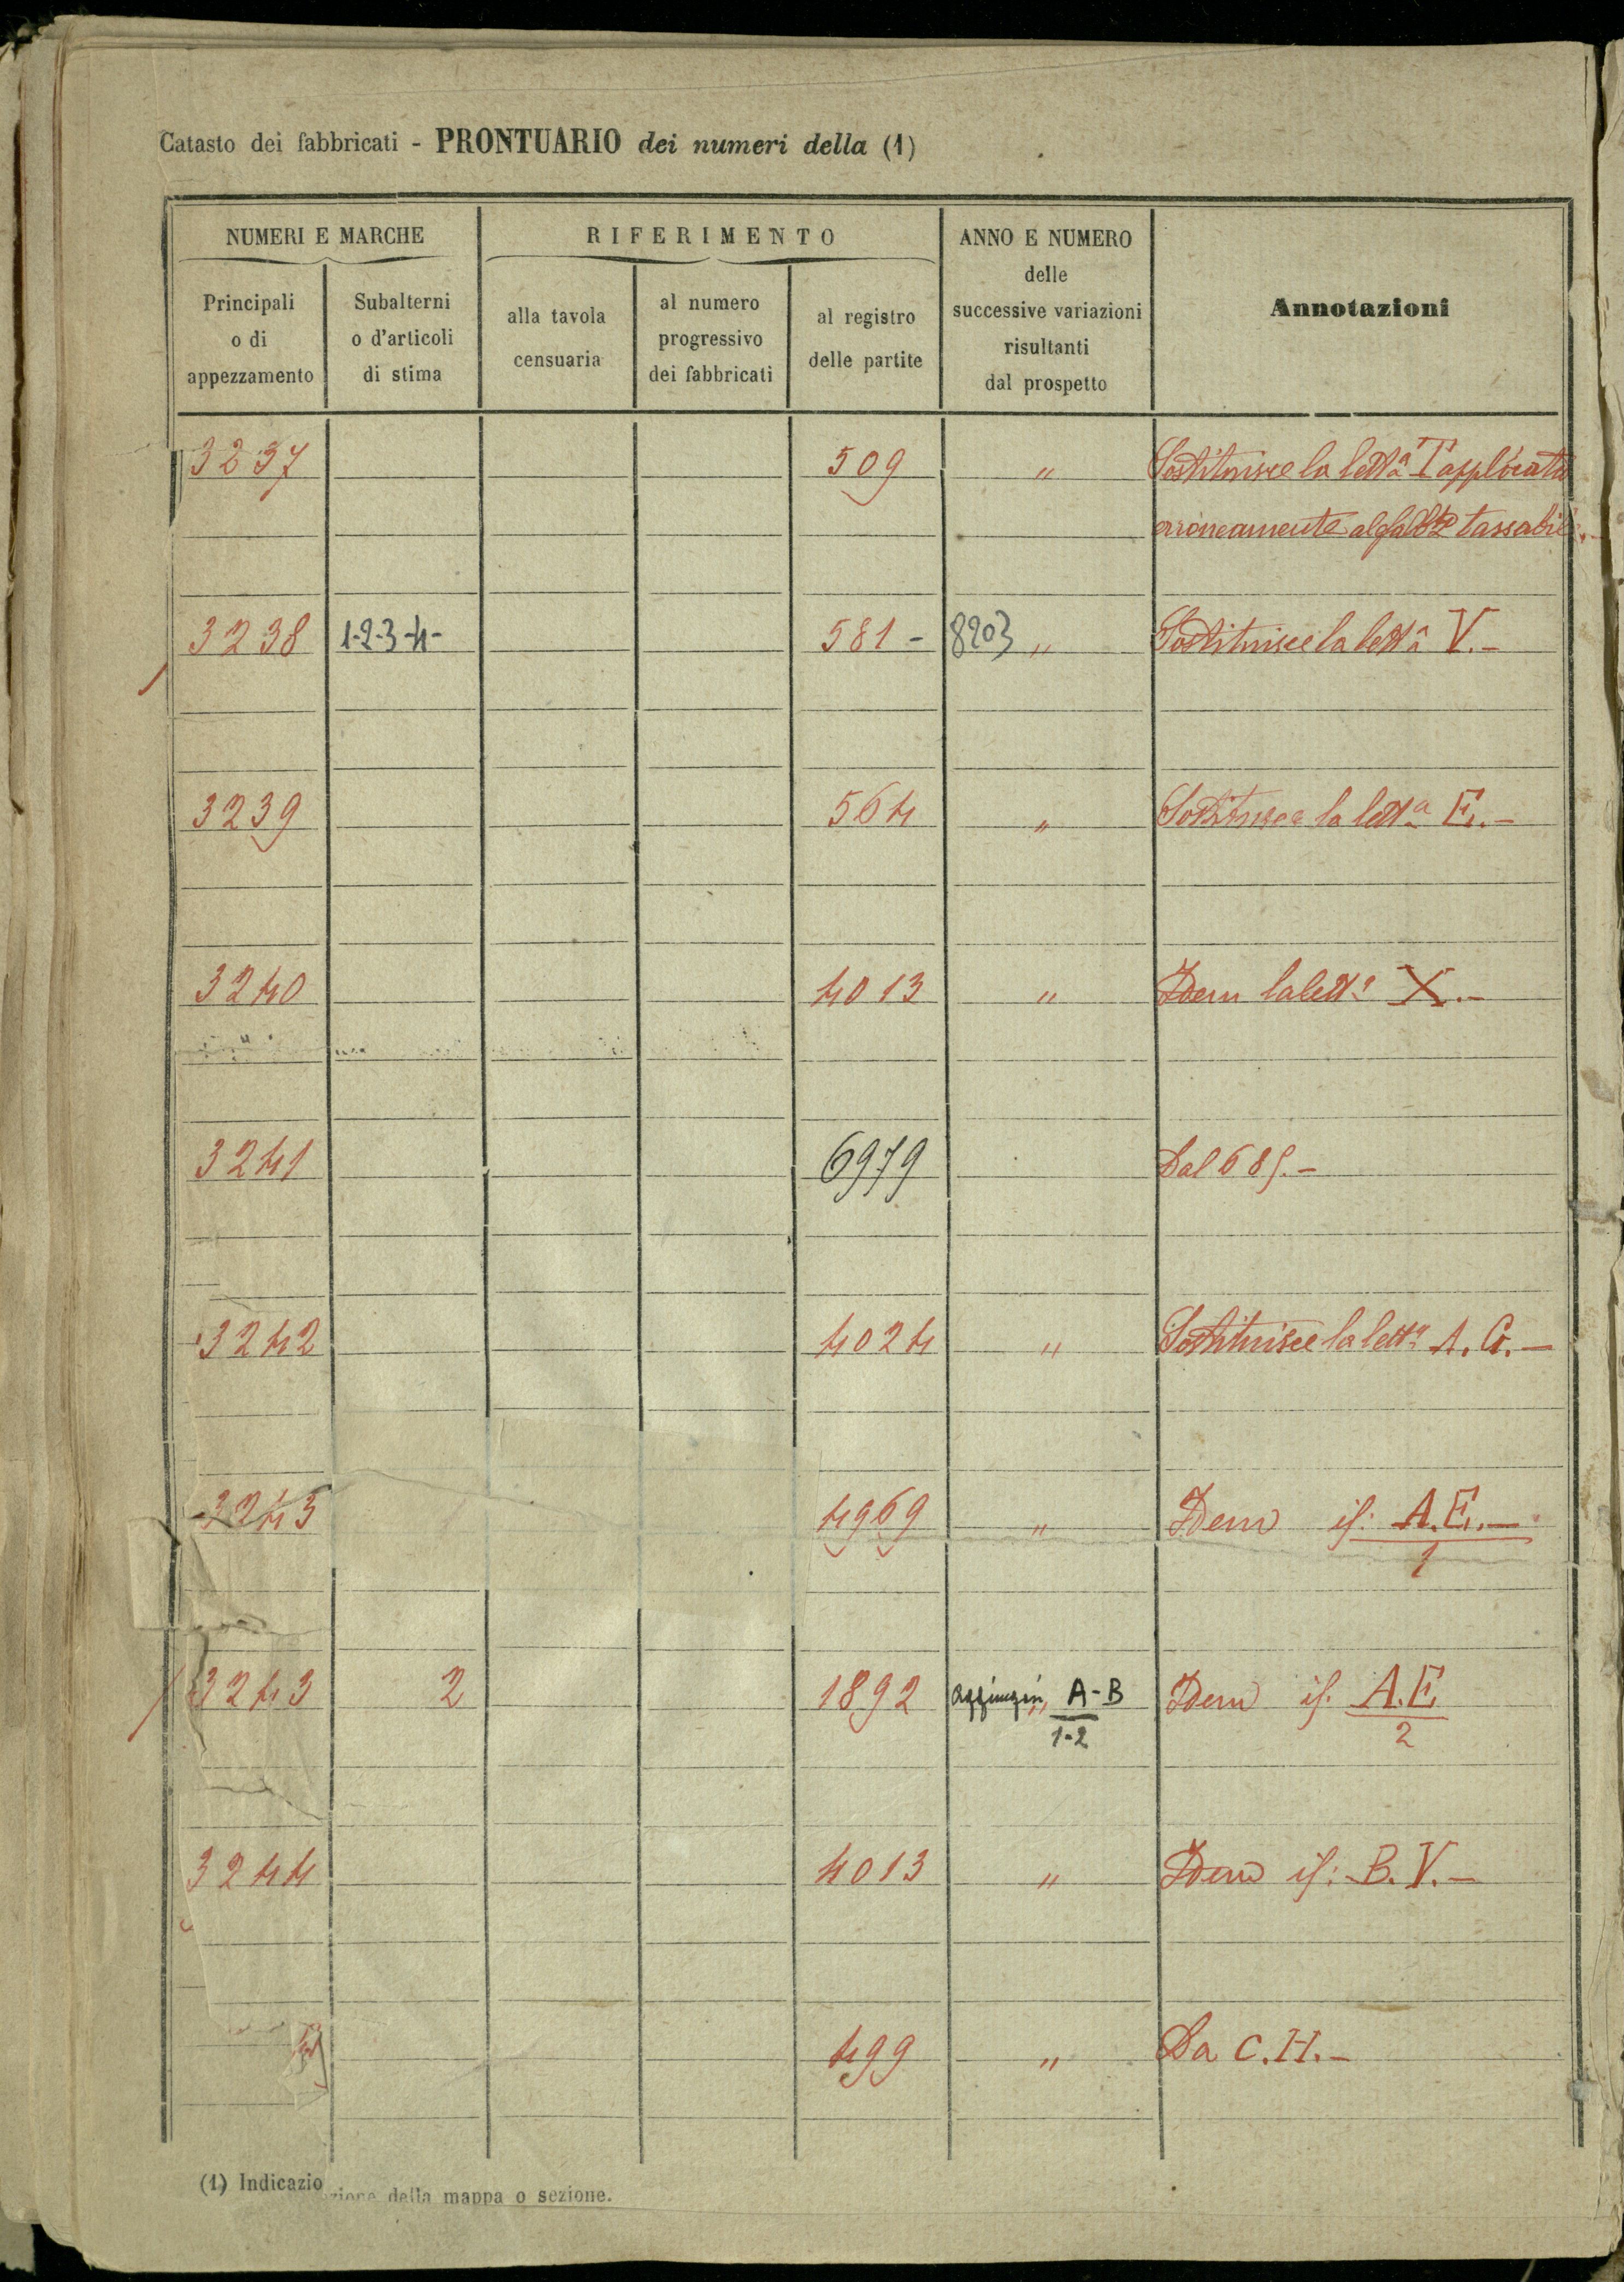 Catasto dei fabbricati - PRONTUARIO dei numeri della (1)
NUMERI E MARCHE
RIFERIMENTO
ANNO E NUMERO
delle
successive variazioni
risultanti
dal prospetto
Annotazioni
Principali
o di
appezzamento
Subalterni
o d'articoli
di stima
alla tavola
censuaria
al numero
progressivo
dei fabbricati
al registro
delle partite
3237 509 " Sostituisce la lettª T applicata
erroneamente al fabbto tassabile.
3238 1-2-3-4- 581 - 8203 " Sostituisce la lettª V. -
3239 564 " Sostituisce la lettª E. -
3240 4013 " Idem la lettª X. -
3241 6979 Dal 685. -
3242 4024 " Sostituisce la lettª A. G. -
3243 4969 " Idem A.E. -
1
3243 2 1892 " A-B Idem A.E
1-2 2
3244 4013 " Idem B. V. -
499 " Da C.H. -
(1) Indicazio
zione della mappa o sezione.